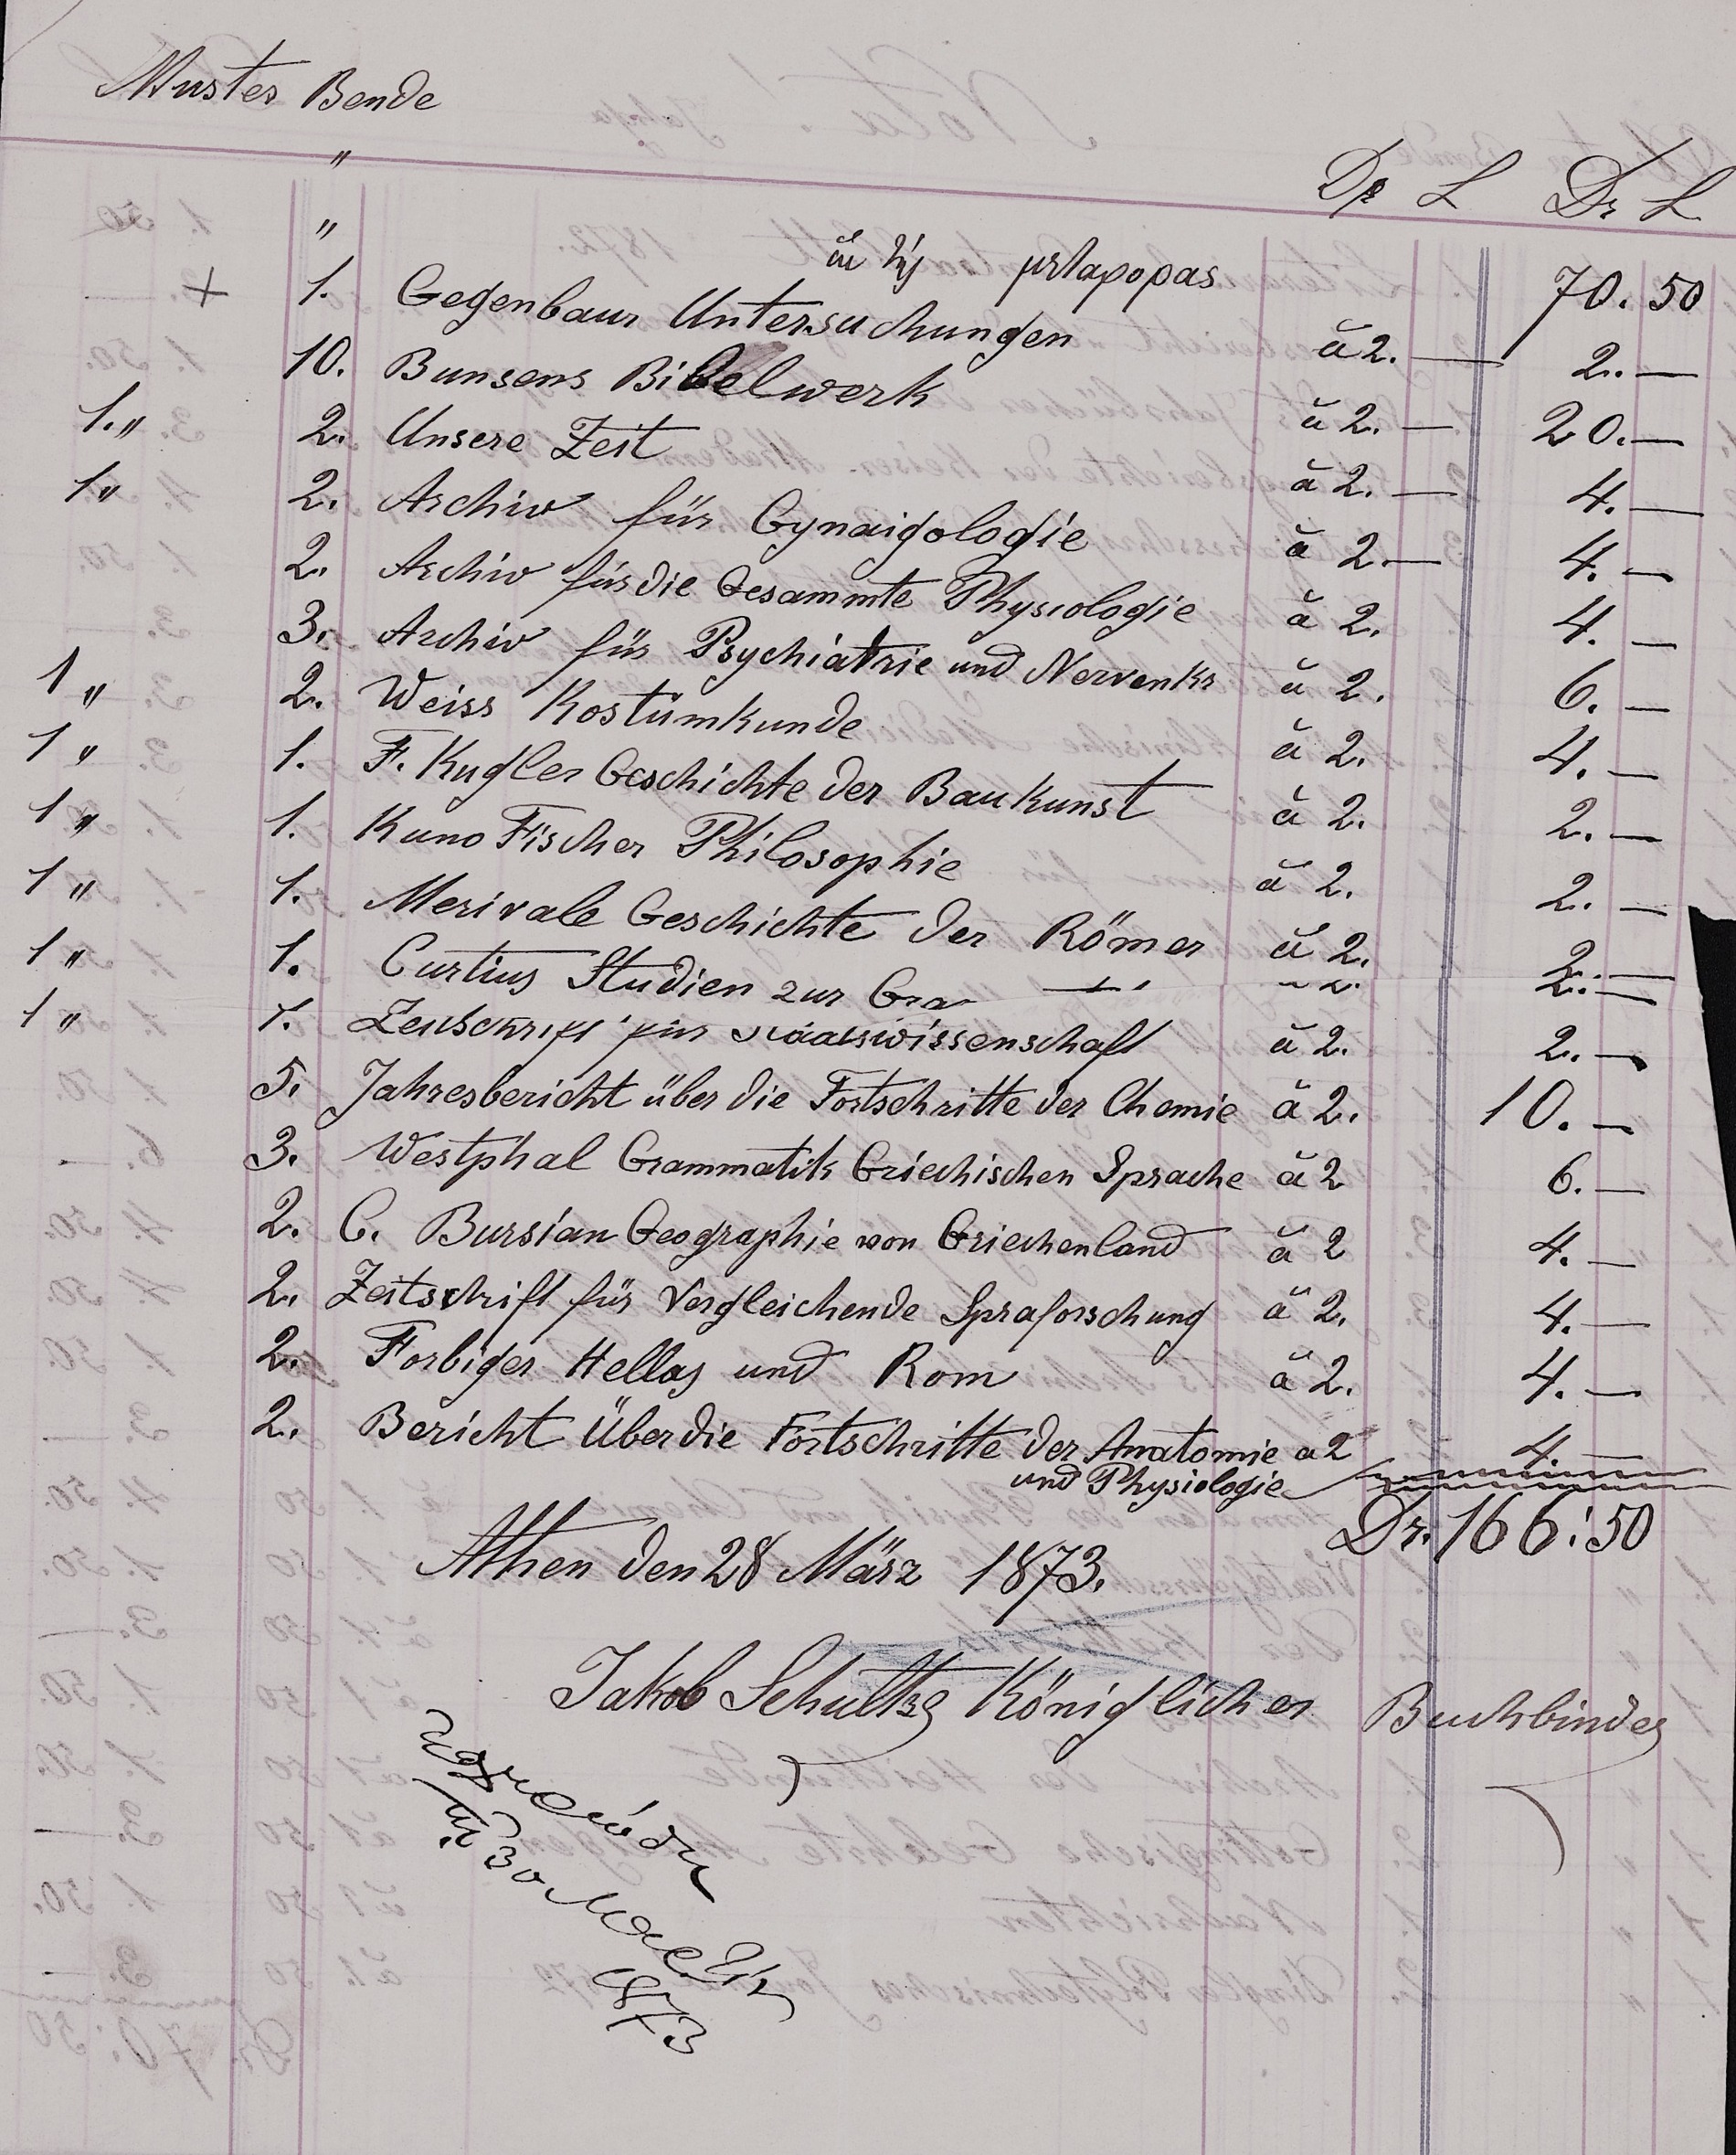 Muster Bende
"
Dr L Dr L
"
ἐκ τῆς μεταφορᾶς 70. 50
+ 1. Gegenbaur Untersuchungen à 2. — 2. —
10. Bunsens Bibelwerk à 2. — 20. —
1. " 2. Unsere Zeit à 2. — 4. —
1 " 2. Archiv für Gynaigologie à 2. — 4. —
2. Archiv für die Gesammte Physiologie à 2. 4. —
3. Archiv für Psychiatrie und Nervenkr à 2. 6. —
1 " 2. Weiss Kostümkunde à 2. 4. —
1 " 1. F. Kugler Geschichte der Baukunst à 2. 2. —
1 " 1. Kuno Fischer Philosophie à 2. 2. —
1 " 1. Merivale Geschichte der Römer à 2. 2. —
1 " 1. Curtius Studien zur 2. —
1 " 1. Zeitschrift für Staatswissenschaft à 2. 2. —
5. Jahresbericht über die Fortschritte der Chemie à 2. 10. —
3. Westphal Grammatik Griechischen Sprache à 2 6. —
2. C. Bursian Geographie von Griechenland à 2 4. —
2. Zeitschrift für Vergleichende Spraforschung à 2. 4. —
2. Forbiger Hellas und Rom à 2. 4. —
2. Bericht Über die Fortschritte der Anatomie a 2 4. —
und Physiologie
Dr. 166:50
Athen den 28 März 1873.
Jakob Schultze Königlicher Buchbinder
30
1873